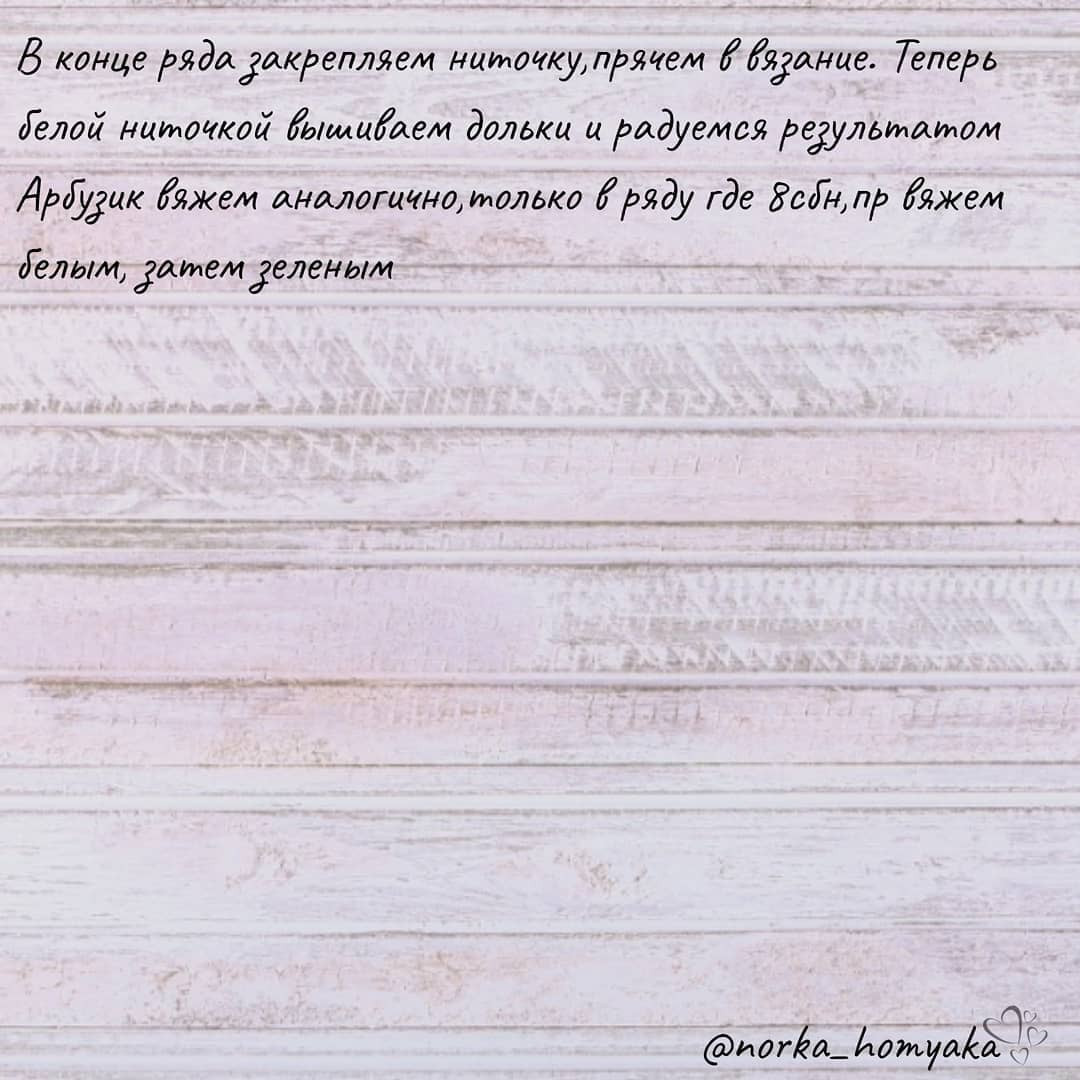 В конце ряда закрепляем ниточку,прячем в вязание. Теперь
белой ниточкой вышиваем дольки и радуемся результатом
Арбузик вяжем аналогично,только в ряду где 8сбн,пр вяжем
белым, затем зеленым
@norka_homyaka